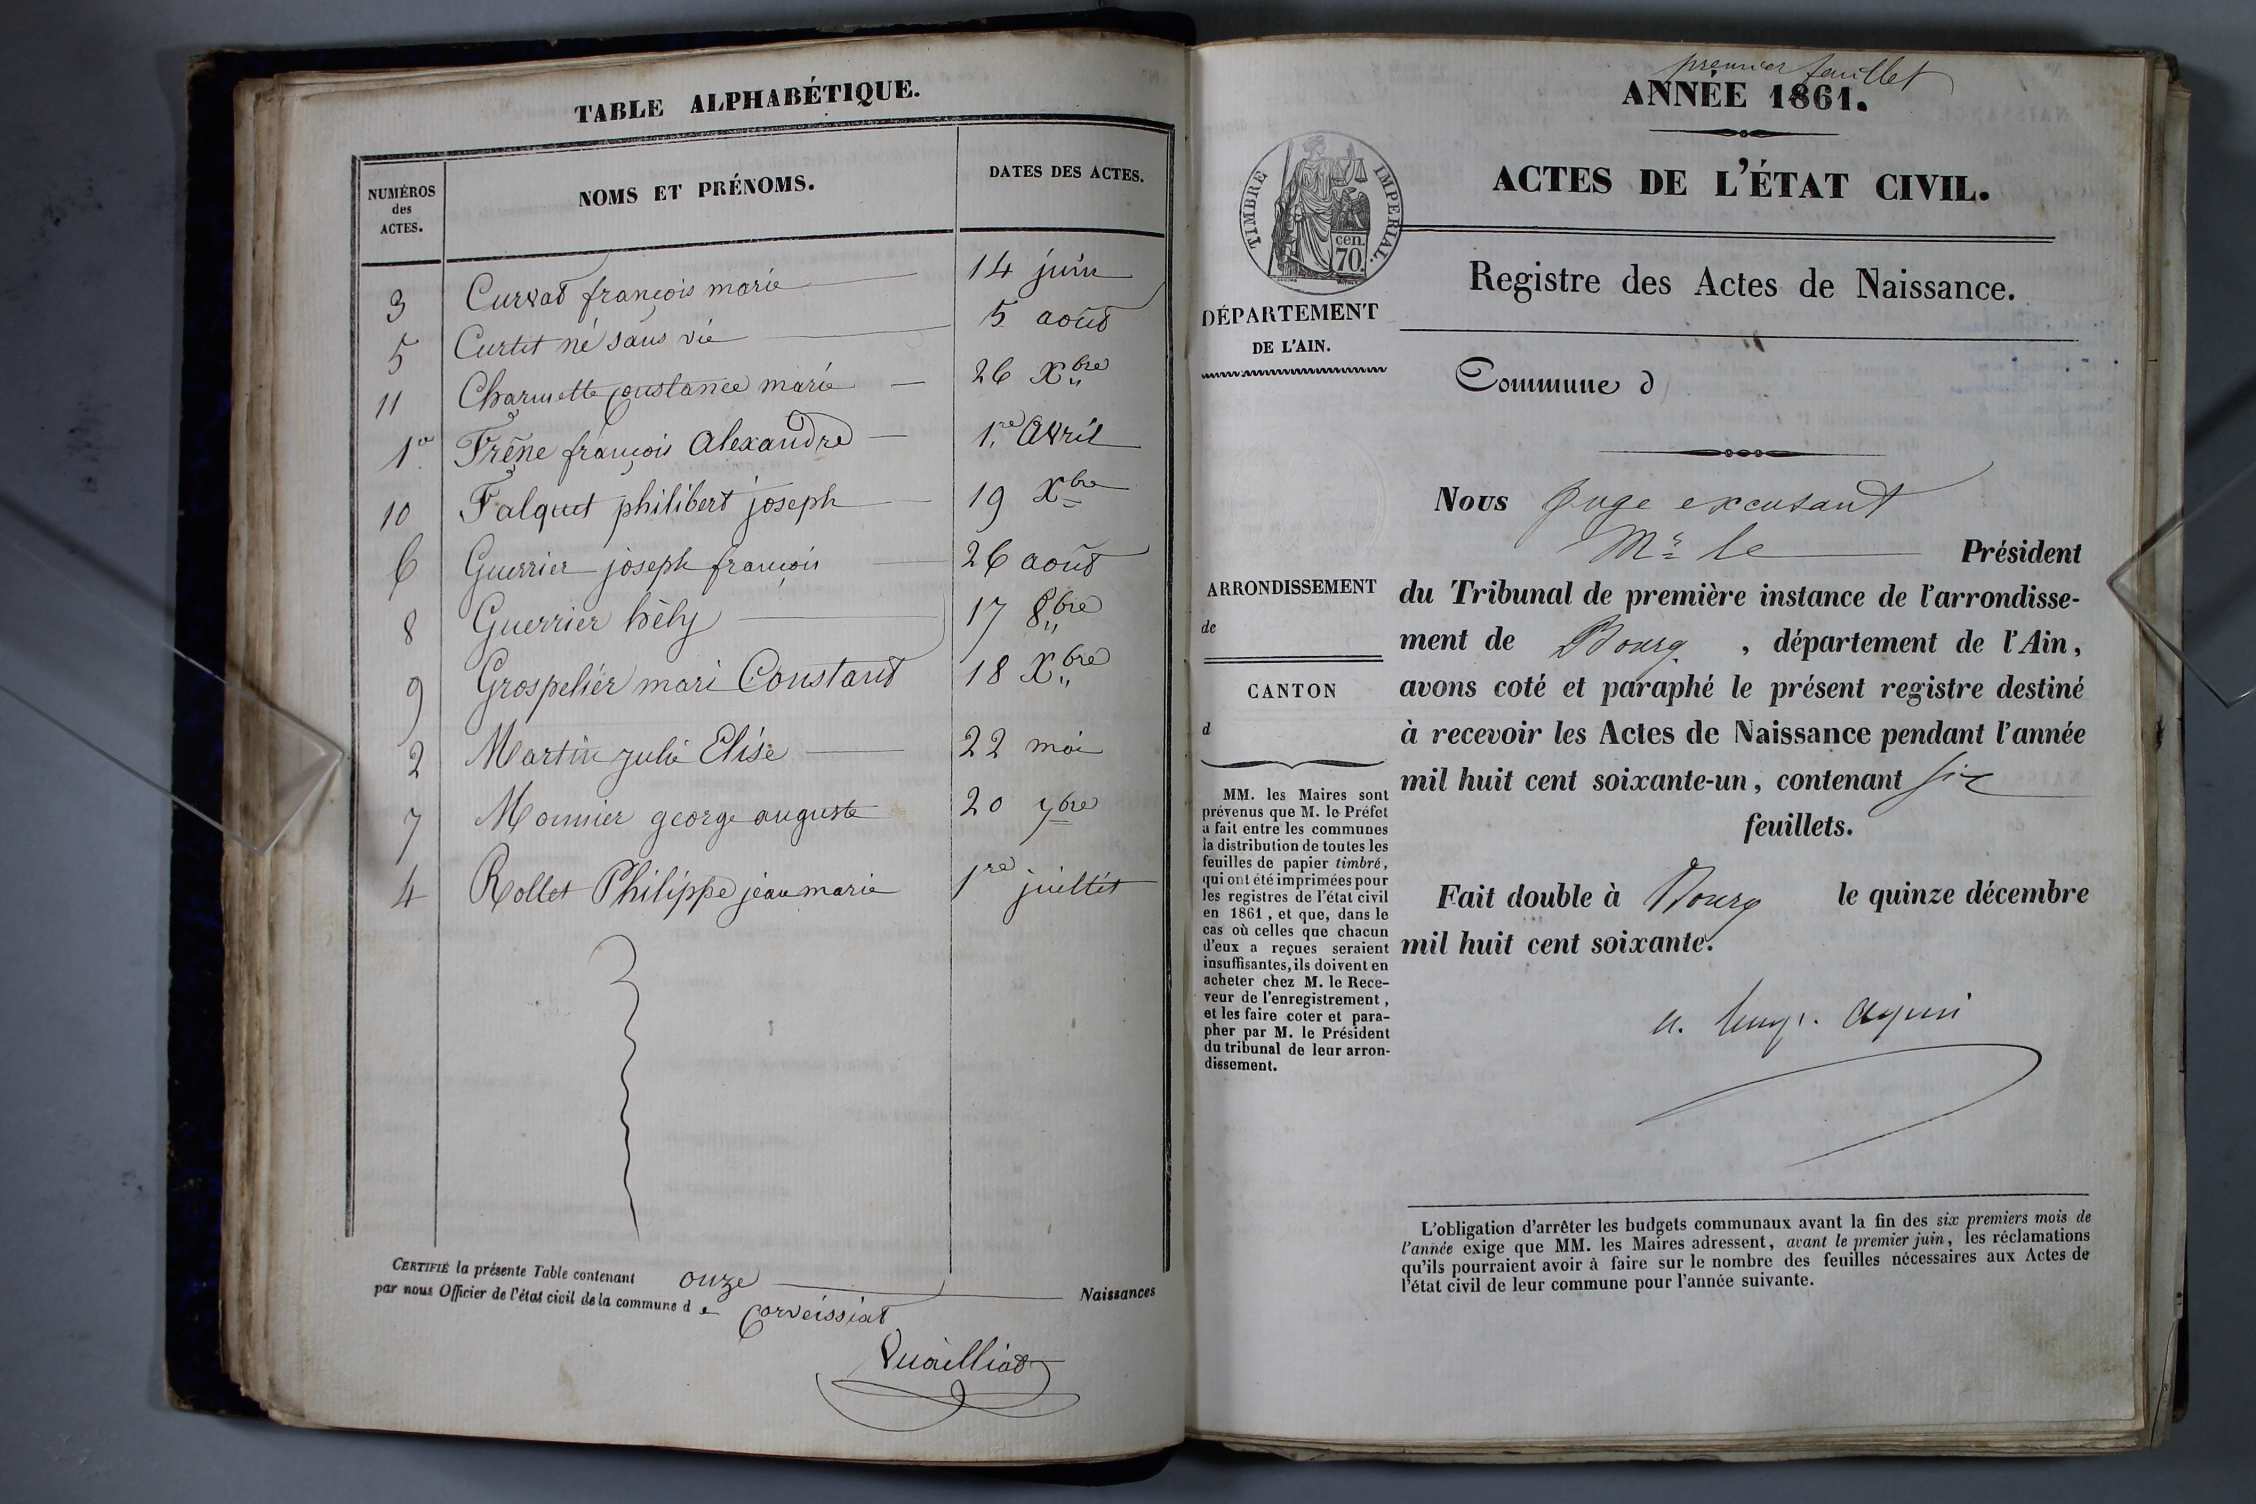 TABLE ALPHABÉTIQUE.
NUMÉROS des ACTES. NOMS ET PRÉNOMS. DATES DES ACTES.
3 Curvat françois marie 14 juin
5 Curtet né sans vie 5 août
11 Charmette Constance marie 26 Xbre
1er Frêne françois Alexandre 1re Avril
10 Falquet philibert joseph 19 Xbre
6 Guerrier joseph françois 26 août
8 Guerrier hély 17 8bre
9 Grospelier mari Constant 18 Xbre
2 Martin julie Elise 22 mai
7 Monnier george auguste 20 7bre
4 Rollet Philippe jean marie 1re juillet
CERTIFIÉ la présente Table contenant onze Naissances
par nous Officier de l'état civil de la commune de Corveissiat
premier feuillet
ANNÉE 1861.
ACTES DE L'ÉTAT CIVIL.
TIMBRE IMPERIAL.
cen.
70
Registre des Actes de Naissance.
DÉPARTEMENT
DE L'AIN.
Commune d
Nous juge excusant
Mr le Président
du Tribunal de première instance de l'arrondisse-
ment de Bourg, département de l'Ain,
avons coté et paraphé le présent registre destiné
à recevoir les Actes de Naissance pendant l'année
mil huit cent soixante-un, contenant six
feuillets.
Fait double à Bourg le quinze décembre
mil huit cent soixante.
ARRONDISSEMENT
de
CANTON
d
MM. les Maires sont
prévenus que M. le Préfet
a fait entre les communes
la distribution de toutes les
feuilles de papier timbré,
qui ont été imprimées pour
les registres de l'état civil
en 1861, et que, dans le
cas où celles que chacun
d'eux a reçues seraient
insuffisantes, ils doivent en
acheter chez M. le Rece-
veur de l'enregistrement,
et les faire coter et para-
pher par M. le Président
du tribunal de leur arron-
dissement.
L'obligation d'arrêter les budgets communaux avant la fin des six premiers mois de
l'année exige que MM. les Maires adressent, avant le premier juin, les réclamations
qu'ils pourraient avoir à faire sur le nombre des feuilles nécessaires aux Actes de
l'état civil de leur commune pour l'année suivante.